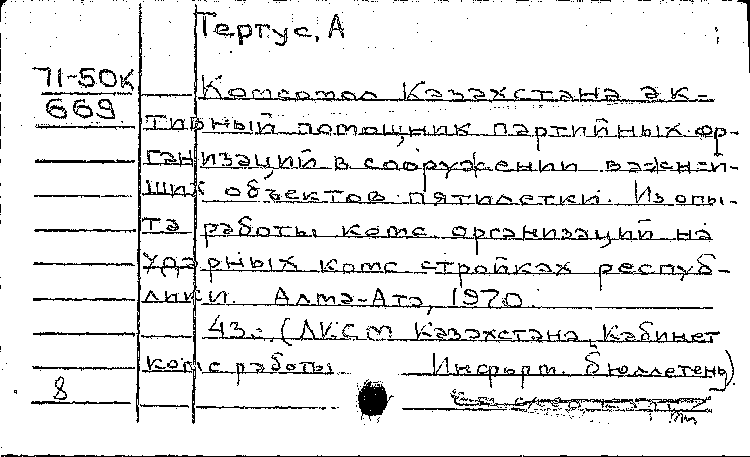 Тертус, А
71-50к
669
Комсомол Казахстана ак-
тивный помощник партийных ор-
ганизаций в сооружении важней-
ших объектов пятилетки. Из опы-
та работы комс. организаций на
ударных комс стройках респуб-
лики. Алма-Ата, 1970.
43с. (ЛКСМ Казахстана, Кабинет
комс работы Информ. бюллетень)
8